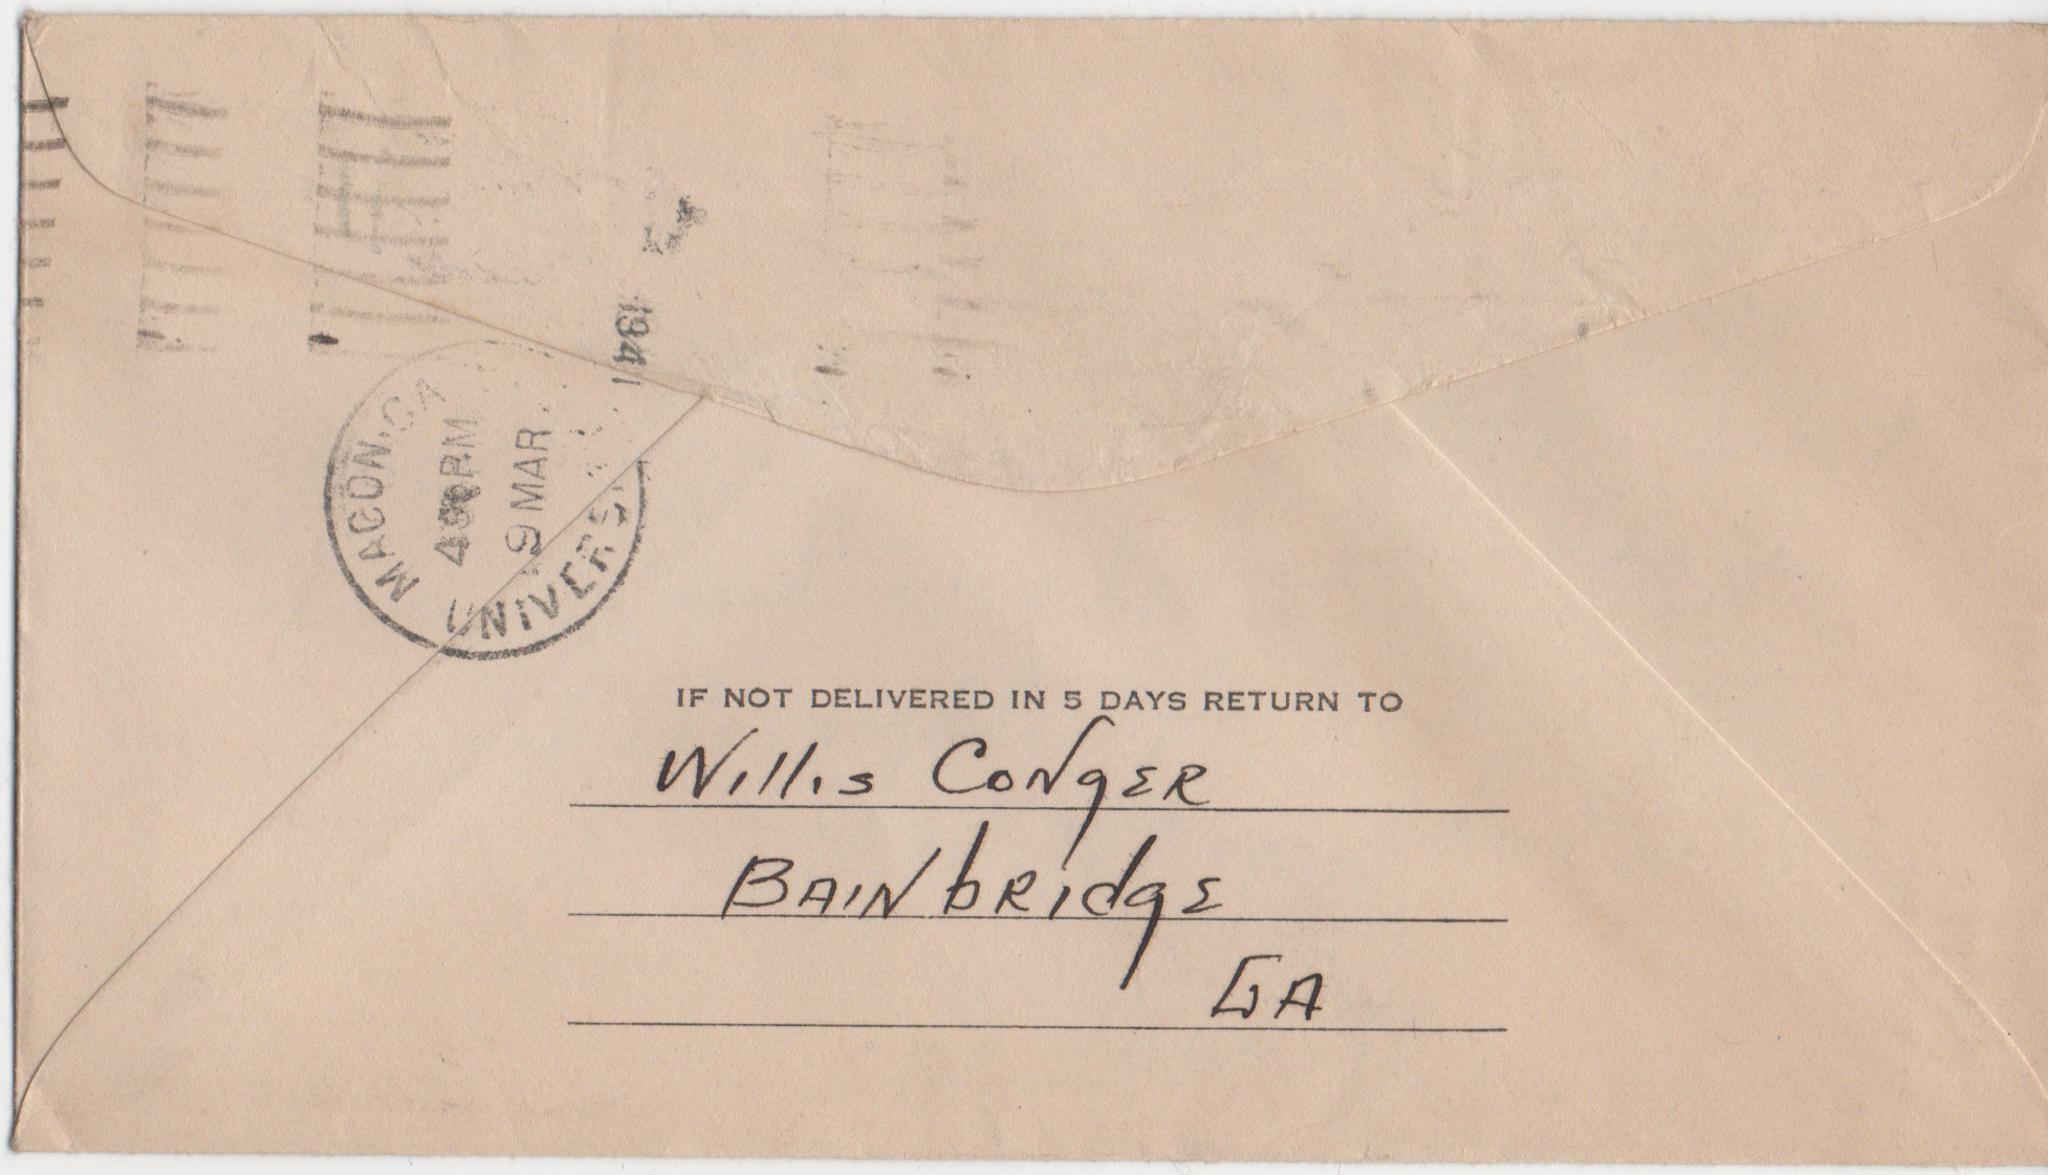 1941
MACON, GA
PM
9 MAR
UNIVERS
IF NOT DELIVERED IN 5 DAYS RETURN TO
Willis Conger
Bainbridge
GA